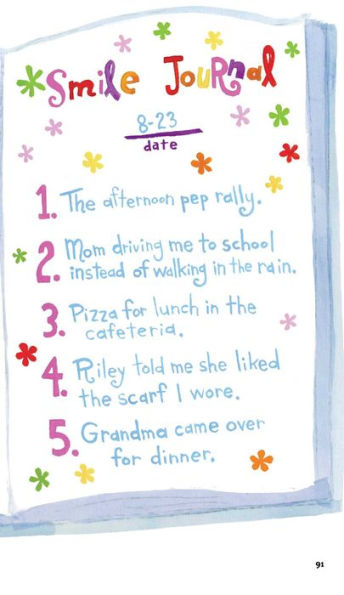 Smile Journal
8-23
date
1. The afternoon pep rally.
2. Mom driving me to school
instead of walking in the rain.
3. Pizza for lunch in the
cafeteria.
4. Riley told me she liked
the scarf I wore.
5. Grandma came over
for dinner.
91